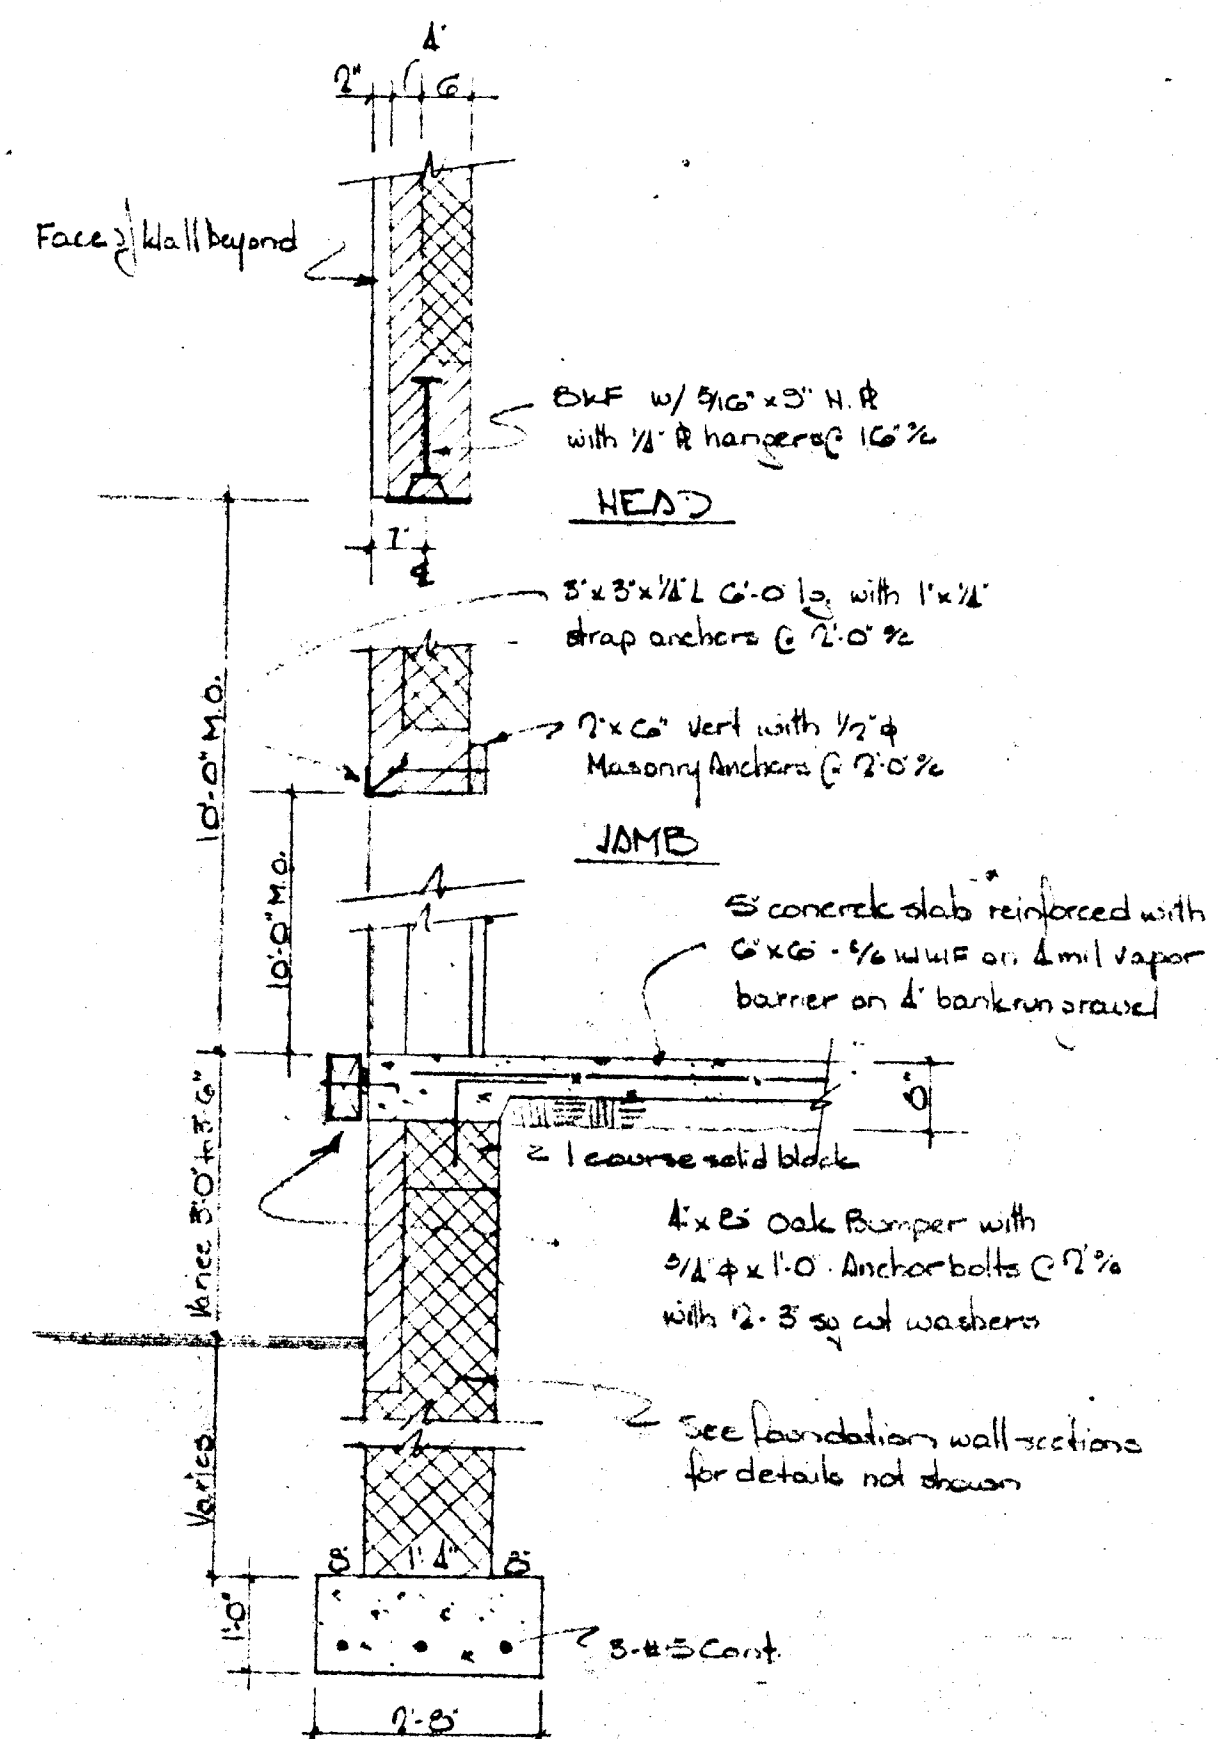 4"
2" 6
Face of Wall beyond
8WF w/ 5/16" x 9" H. PL
with 1/4" PL hangers @ 16" o/c
HEAD
7"
3" x 3" x 1/4" L 6'-0 lg with 1" x 1/4"
strap anchors @ 2'-0" o/c
10'-0" M.O.
2" x 6" Vert with 1/2" ϕ
Masonry Anchors @ 2'-0" o/c
JAMB
10'-0" M.O.
5" concrete slab reinforced with
6" x 6" - 6/6 WWF on 4 mil vapor
barrier on 4" bankrun gravel
8"
1 course solid block
Varies 3'-0" to 3'-6"
4" x 8" Oak Bumper with
3/4" ϕ x 1'-0" Anchor bolts @ 2' o/c
with 2 - 3" sq cut washers
See foundation wall sections
for details not shown
Varies
8" 1'-4" 8"
1'-0"
3-#5 Cont.
2'-8"